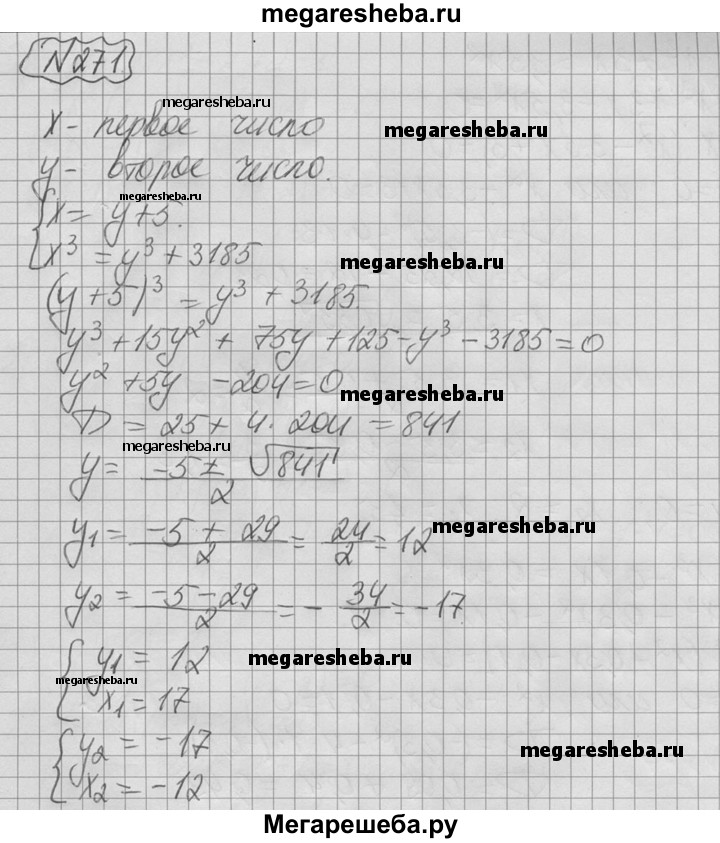 megaresheba.ru
N271
megaresheba.ru
x - первое число
megaresheba.ru
y - второе число.
megaresheba.ru
{ x = y+5.
x³ = y³ + 3185
megaresheba.ru
(y+5)³ = y³ + 3185.
y³ + 15y² + 75y + 125 - y³ - 3185 = 0
y² + 5y - 204 = 0
megaresheba.ru
D = 25 + 4 · 204 = 841
megaresheba.ru
y = (-5 ± √841)/2
y₁ = (-5 + 29)/2 = 24/2 = 12
megaresheba.ru
y₂ = (-5 - 29)/2 = - 34/2 = -17
{ y₁ = 12
megaresheba.ru
megaresheba.ru
x₁ = 17
{ y₂ = -17
megaresheba.ru
x₂ = -12
Мегарешеба.ру